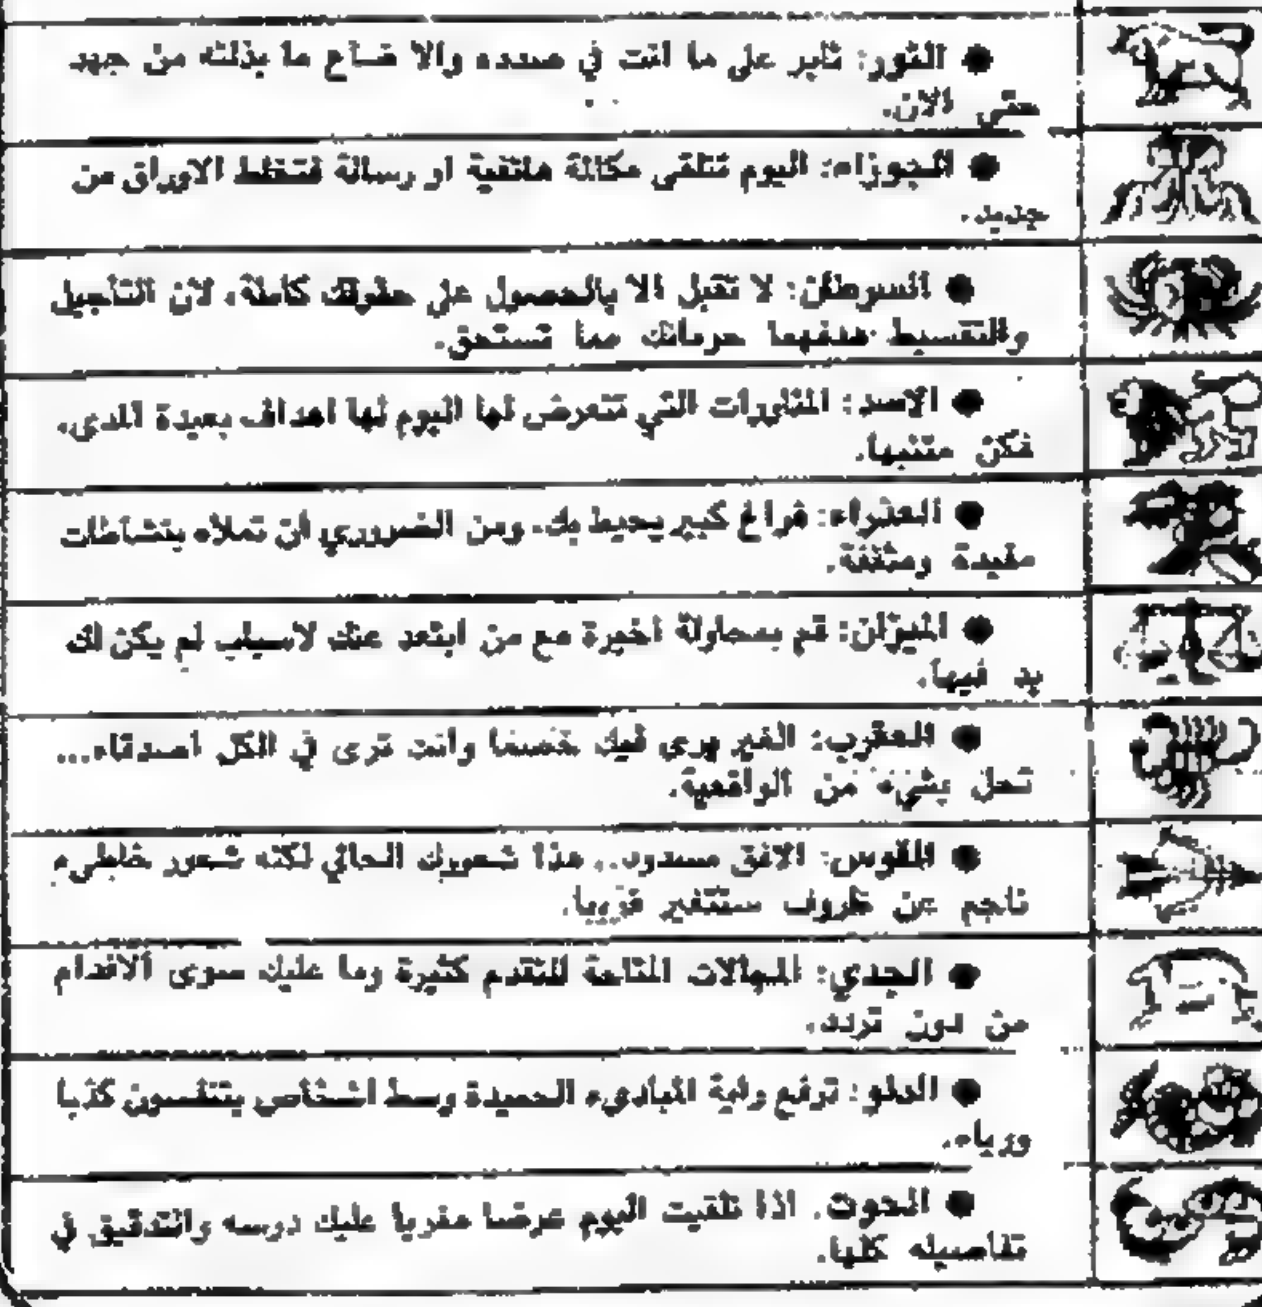 ● الثور: ثابر على ما انت في صدده والا ضاع ما بذلته من جهد
حتى الان.
● الجوزاء: اليوم تتلقى مكالمة هاتفية او رسالة فتختلط الاوراق من
جديد.
● السرطان: لا تقبل الا بالحصول على حقوقك كاملة، لان التأجيل
والتقسيط هدفهما حرمانك مما تستحق.
● الاسد: المناورات التي تتعرض لها اليوم لها اهداف بعيدة المدى،
فكن متنبها.
● العذراء: فراغ كبير يحيط بك، ومن الضروري ان تملاه بنشاطات
مفيدة ومثقفة.
● الميزان: قم بمحاولة اخيرة مع من ابتعد عنك لاسباب لم يكن لك
يد فيها.
● العقرب: الغير يرى فيك خصما وانت ترى في الكل اصدقاء...
تحل بشيء من الواقعية.
● القوس: الافق مسدود.. هذا شعورك الحالي لكنه شعور خاطىء
ناجم عن ظروف ستتغير قريبا.
● الجدي: المجالات المتاحة للتقدم كثيرة وما عليك سوى الاقدام
من دون تردد.
● الدلو: ترفع راية المبادىء الحميدة وسط اشخاص يتنفسون كذبا
ورياء.
● الحوت. اذا تلقيت اليوم عرضا مغريا عليك درسه والتدقيق في
تفاصيله كلها.